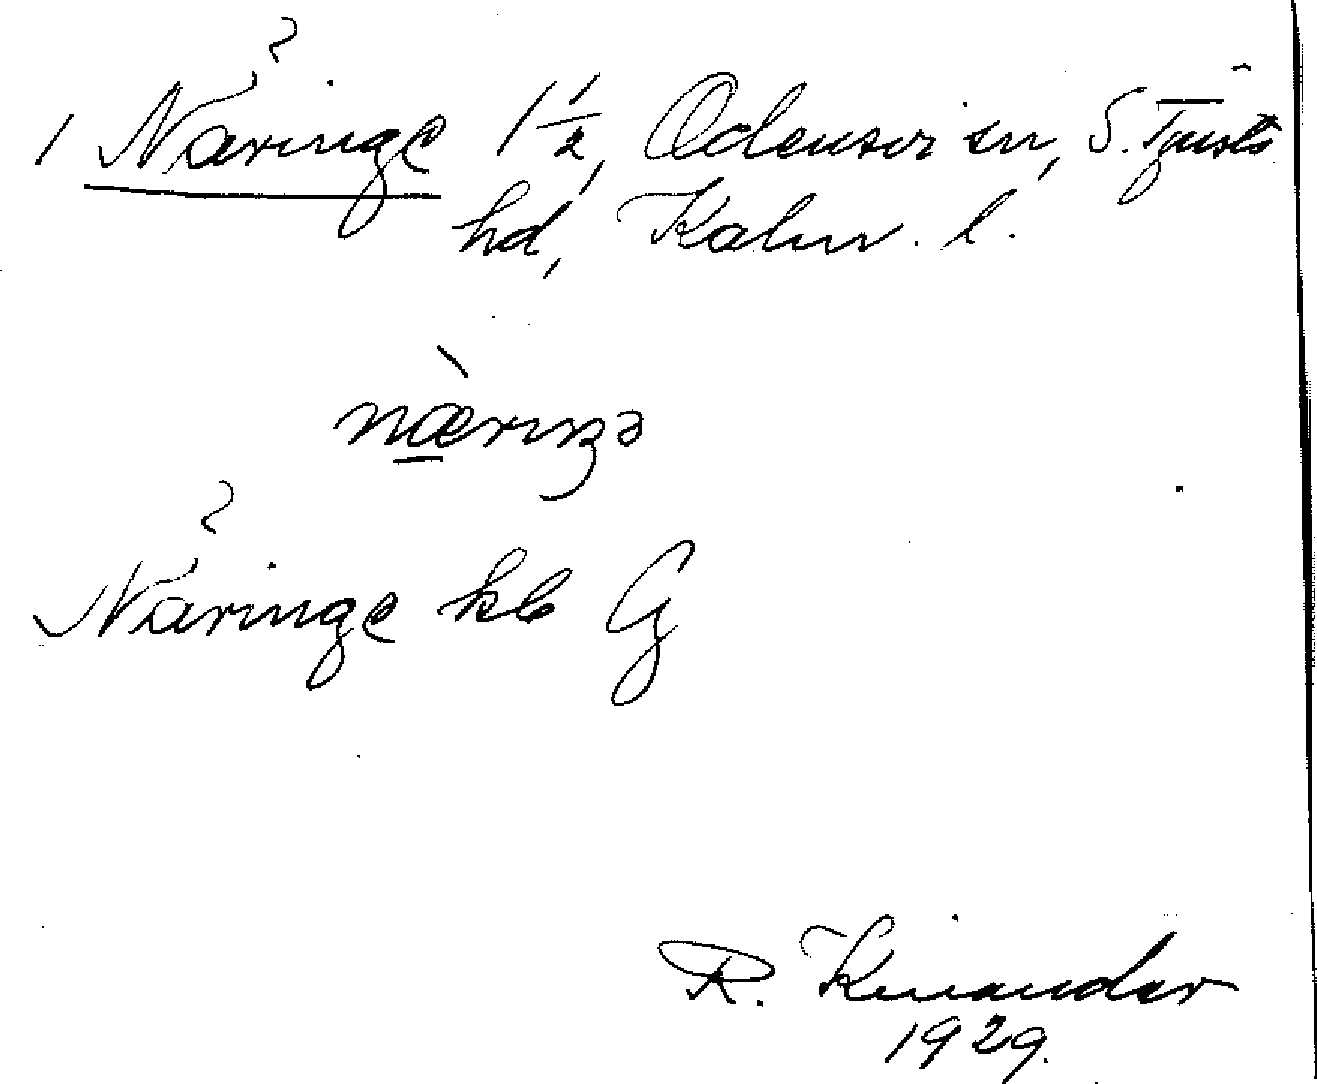 1 Näringe 1½, Odensvi sn, S. Tjusts
hd, Kalm. l.
næ̀riŋə
Näringe kb G
R. Kinander
1929.